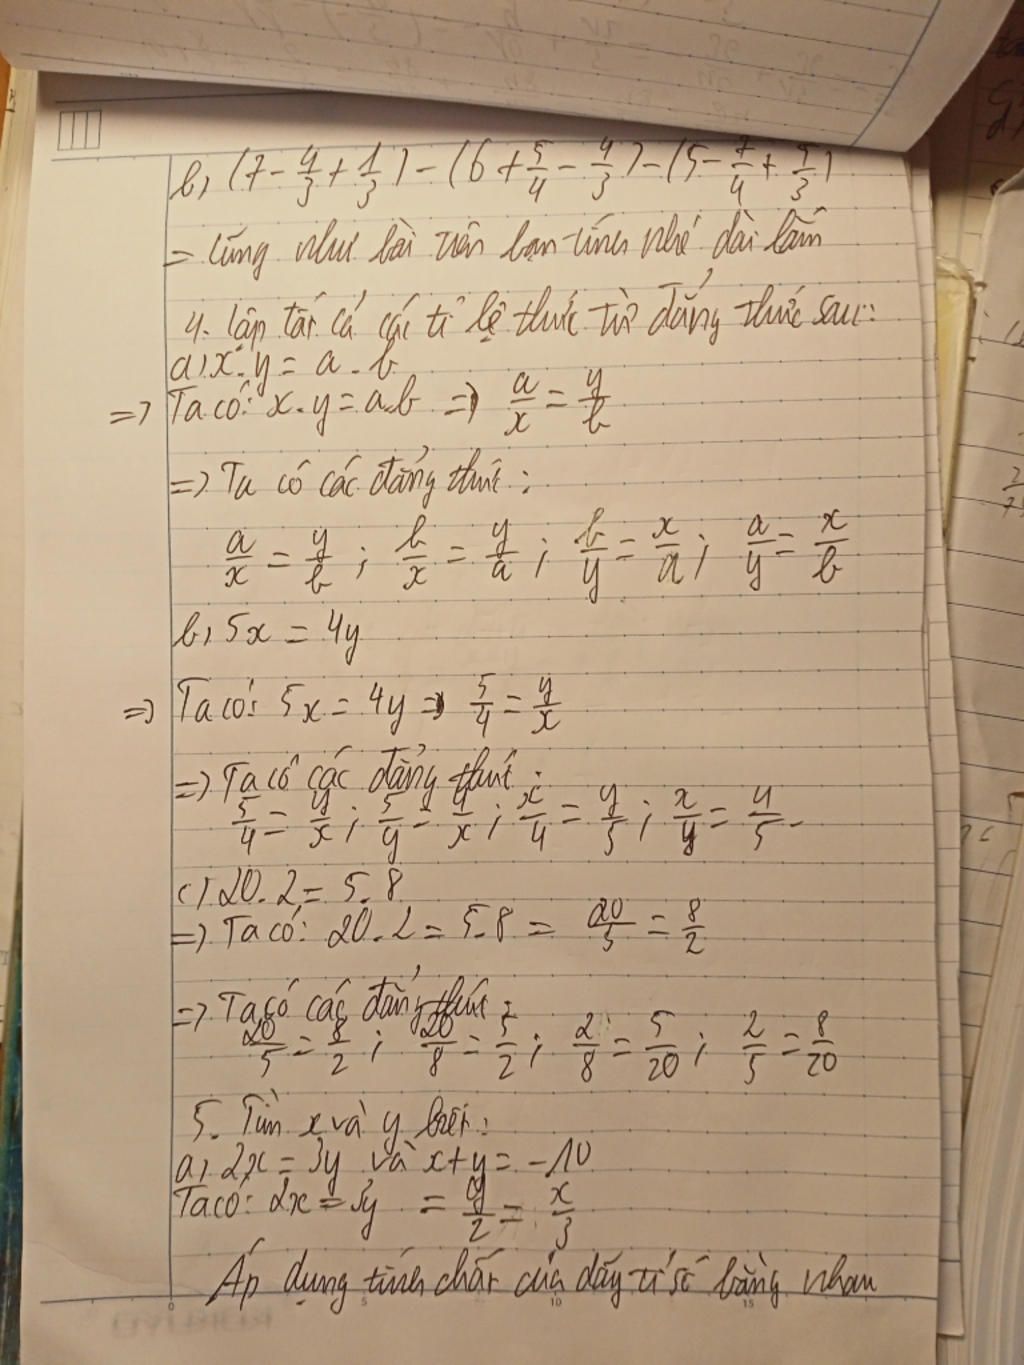 b, (7 - 4/3 + 1/3) - (6 + 5/4 - 4/3) - (5 - 7/4 + 5/3)
= Cũng như bài trên bạn tính nhé dài lắm
4. Lập tất cả các tỉ lệ thức từ đẳng thức sau:
a, x.y = a.b
=> Ta có: x.y = a.b => a/x = y/b
=> Ta có các đẳng thức:
a/x = y/b ; b/x = y/a ; b/y = x/a ; a/y = x/b
b, 5x = 4y
=> Ta có: 5x = 4y => 5/4 = y/x
=> Ta có các đẳng thức:
5/4 = y/x ; 5/y = 4/x ; x/4 = y/5 ; x/y = 4/5.
c, 20.2 = 5.8
=> Ta có: 20.2 = 5.8 = 20/5 = 8/2
=> Ta có các đẳng thức:
20/5 = 8/2 ; 20/8 = 5/2 ; 2/8 = 5/20 ; 2/5 = 8/20
5. Tìm x và y biết:
a, 2x = 3y và x+y = -10
Ta có: 2x = 3y = y/2 = x/3
Áp dụng tính chất của dãy tỉ số bằng nhau